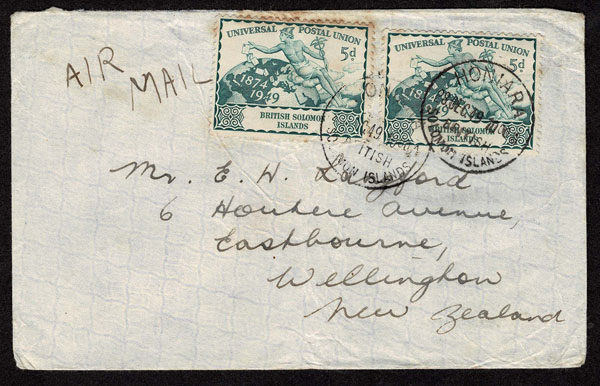 UNIVERSAL POSTAL UNION
5d.
1874
1949
BRITISH SOLOMON
ISLANDS
UNIVERSAL POSTAL UNION
5d.
1874
1949
BRITISH SOLOMON
ISLANDS
HONIARA
BRITISH
SOLOMON ISLANDS
AIR
MAIL
Mr. E. W.
6 Houhere Avenue,
Eastbourne,
Wellington
New Zealand